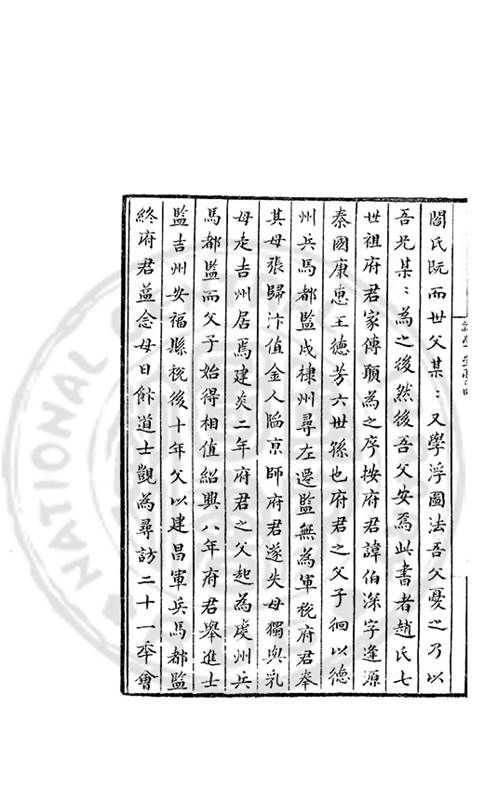 閻氏旣而世父某〻又學浮圖法吾父憂之乃以
吾兄某〻為之後然後吾父安焉此書者趙氏七
世祖府君家傳願為之序按府君諱伯深字逢源
秦國康惠王德芳六世孫也府君之父子徊以德
州兵馬都監戍棣州尋左遷監無為軍稅府君奉
其母張歸汴值金人陷京師府君遂失母獨與乳
母走吉州居焉建炎二年府君之父起為虔州兵
馬都監而父子始得相值紹興八年府君舉進士
監吉州安福縣稅後十年父以建昌軍兵馬都監
終府君益念母日飰道士觀為尋訪二十一年會
NATIONAL